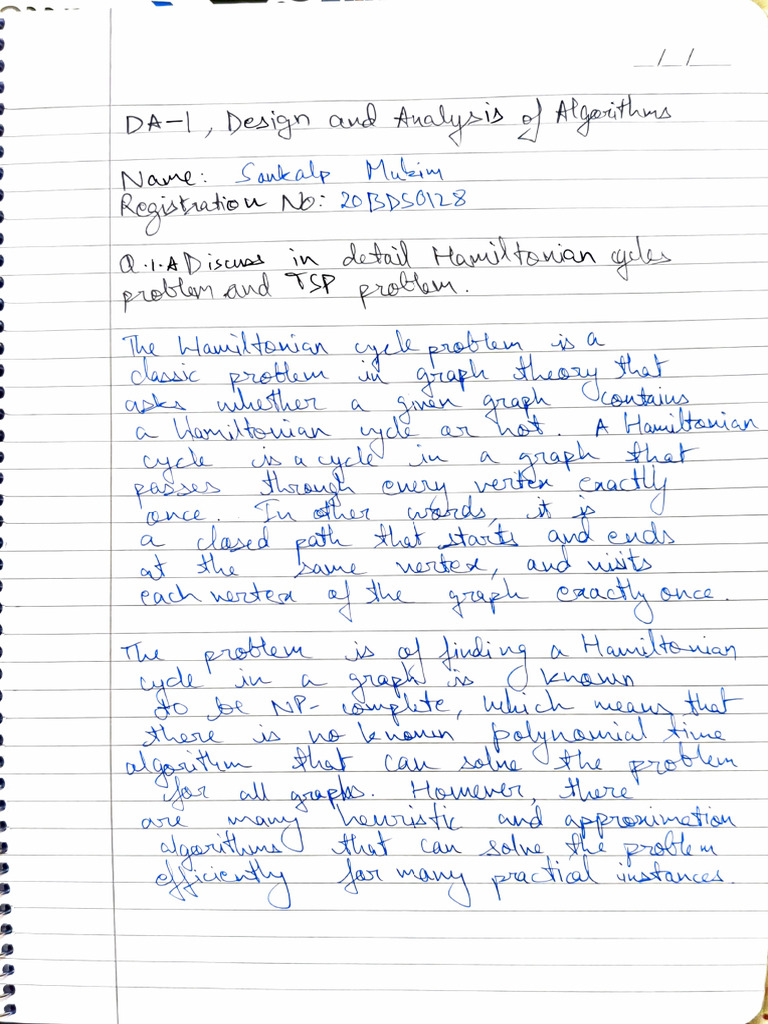 __/__/____
DA-1, Design and Analysis of Algorithms
Name: Sankalp Mukim
Registration No: 20BDS0128
Q.1.A Discuss in detail Hamiltonian cycles
problem and TSP problem.
The Hamiltonian cycle problem is a
classic problem in graph theory that
asks whether a given graph contains
a Hamiltonian cycle or not. A Hamiltonian
cycle is a cycle in a graph that
passes through every vertex exactly
once. In other words, it is
a closed path that starts and ends
at the same vertex, and visits
each vertex of the graph exactly once.
The problem is of finding a Hamiltonian
cycle in a graph is known
to be NP-complete, which means that
there is no known polynomial time
algorithm that can solve the problem
for all graphs. However, there
are many heuristic and approximation
algorithms that can solve the problem
efficiently for many practical instances.